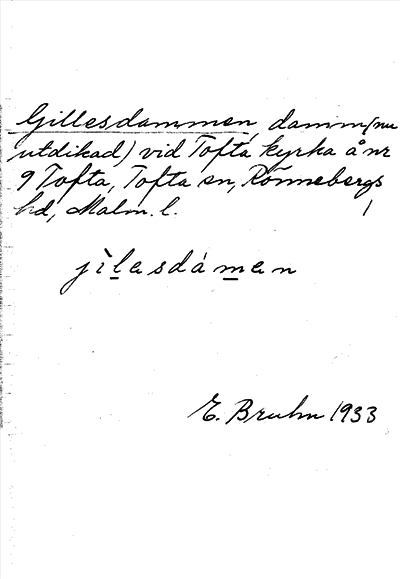 Gillesdammen, damm (nu
utdikad) vid Tofta kyrka å nr
9 Tofta, Tofta sn, Rönnebergs
hd, Malm. l.
jìlasdámen
E. Bruhn 1933